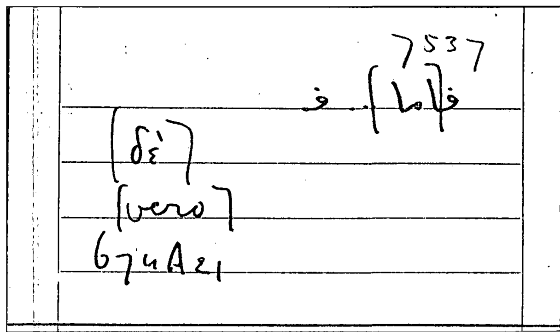 7537
فـ[أما] .. فـ
[δέ]
[vero]
674A21